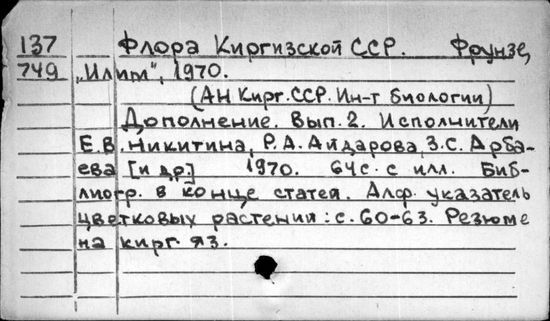 137 Флора Киргизской ССР. Фрунзе,
749 "Илим", 1970.
(АН Кирг. ССР. Ин-т биологии)
Дополнение. Вып. 2. Исполнители
Е.В. Никитина, Р.А. Айдарова, З.С. Арба-
ева [и др.] 1970. 64с. с илл. Биб-
лиогр. в конце статей. Алф. указатель
цветковых растений: с. 60-63. Резюме
на кирг. яз.